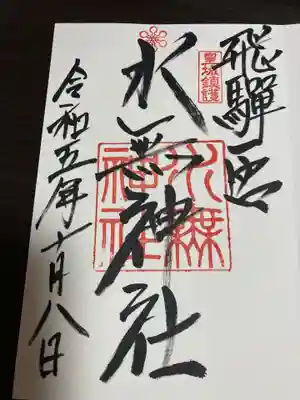 飛驒
皇城鎮護
水無神社
水無神社
令和五年十月八日